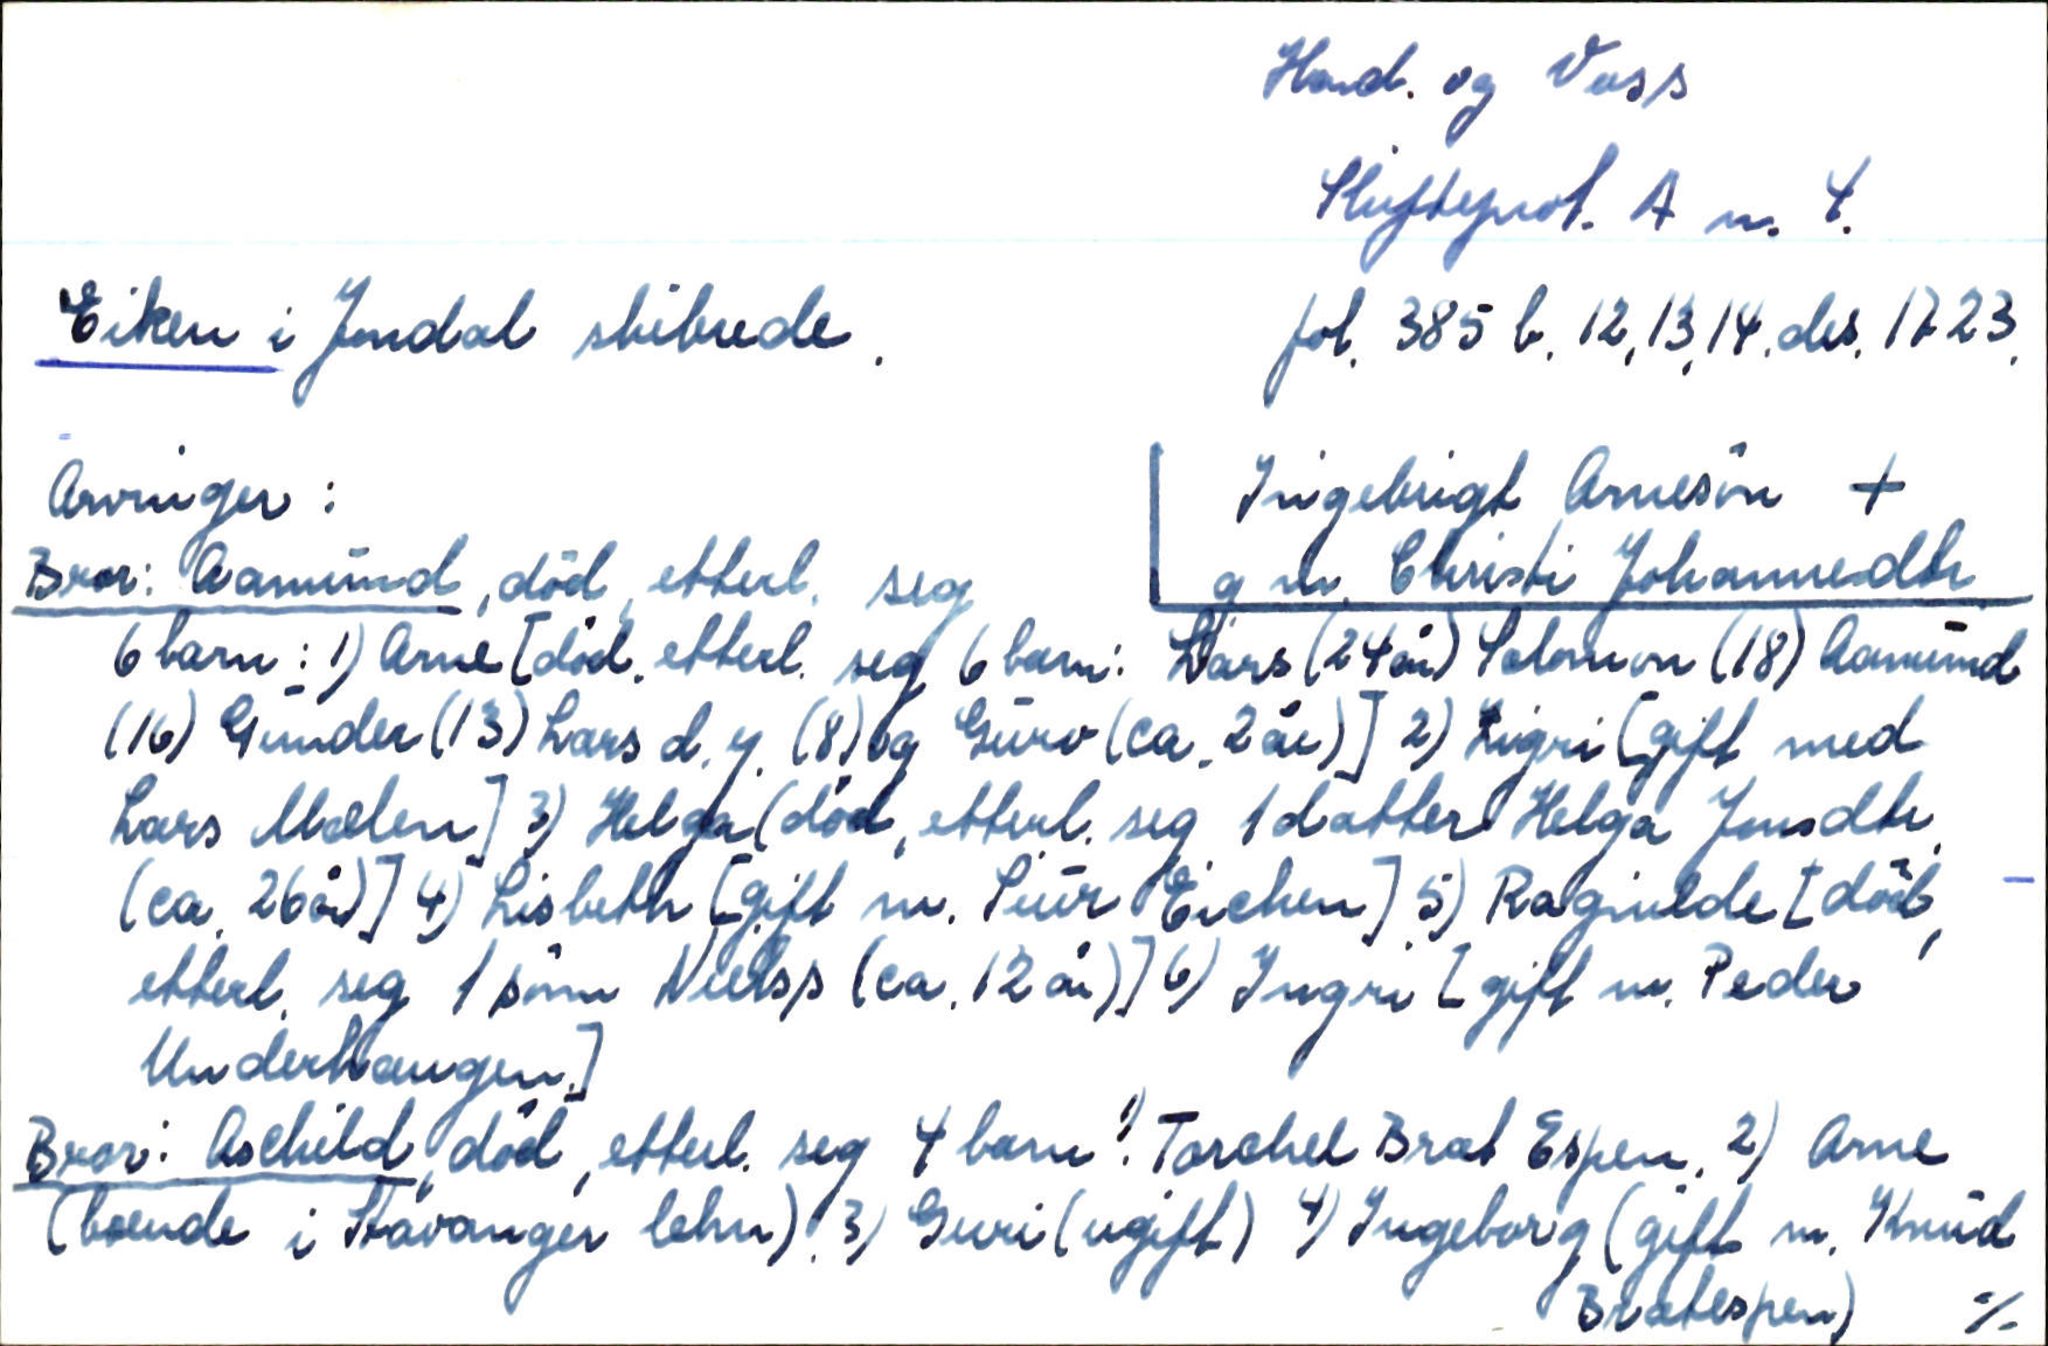 Hard. og Voss
Skifteprot. A nr. 4.
Eiken i Jondal skibrede.
fol. 385 b. 12, 13, 14. des. 1723.
Arvinger:
Ingebrigt Arnesön +
g m. Christi Johannesdtr
Bror: Aamund, död, etterl. seg
6 barn: 1) Arne [död. etterl. seg 6 barn: Lars (24 år) Salomon (18) Aamund
(16) Gunder (13) Lars d.y. (8) og Guro (ca. 2 år)] 2) Zigri [gift med
Lars Mælen] 3) Helga (död, etterl. seg 1 datter Helga Jonsdtr.
(ca. 26 år)] 4) Lisbeth [gift m. Siur Eichen] 5) Ragnilde [död,
etterl. seg 1 sönn Nielss (ca. 12 år)] 6) Ingri [gift m. Peder
Underhaugen.]
Bror: Aschild, död, etterl. seg 4 barn: 1) Torchel Brat Espen, 2) Arne
(boende i Stavanger lehn). 3) Guri (ugift) 4) Ingeborg (gift m. Knud
Bratespen) ./.